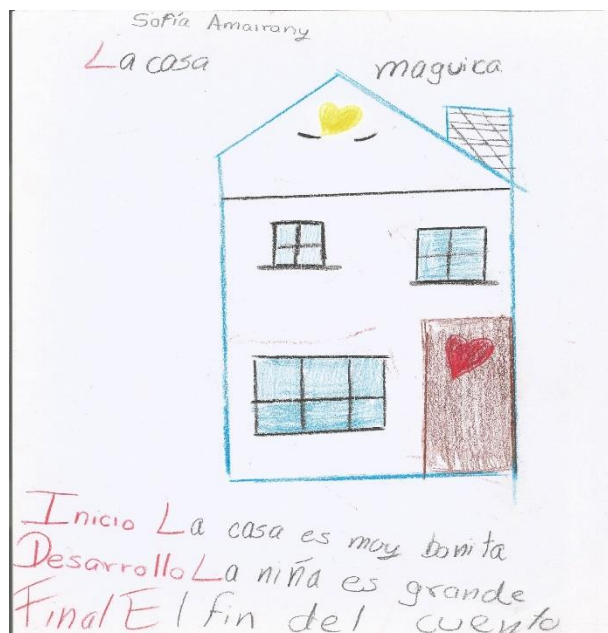 Sofía Amairany
La casa maguica
Inicio La casa es moy bonita
Desarrollo La niña es grande
Final El fin del cuento